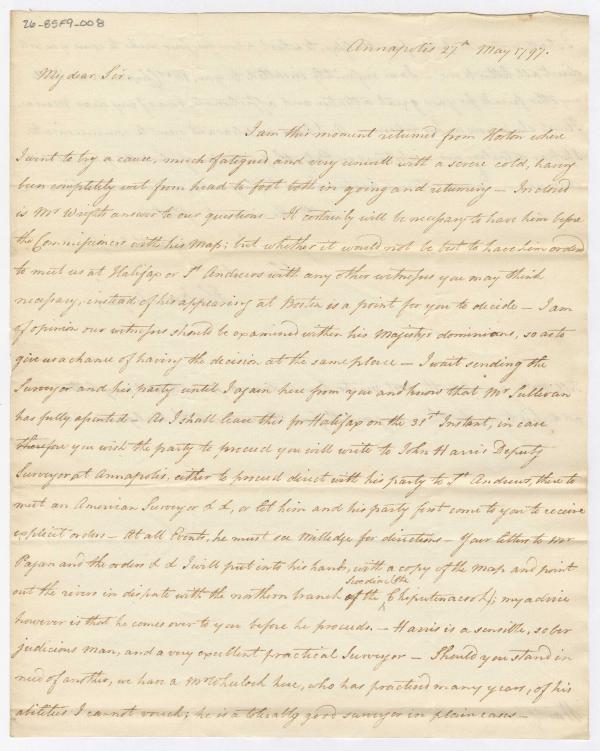 26-85F9-008
Annapolis 27th May 1797.
My dear Sir.
I am this moment returned from Horton where
I went to try a cause, much fatigued and very unwell with a severe cold, having
been completely wet from head to foot both in going and returning – Inclosed
is Mr Wright's answer to our questions – It certainly will be necessary to have him before
the Commissioners with his Map; but whether it would not be best to have him ordered
to meet us at Halifax or St Andrews with any other witnesses you may think
necessary, instead of his appearing at Boston is a point for you to decide – I am
of opinion our witnesses should be examined within his Majestys dominions, so as to
give us a chance of having the decision at the same place – I wait sending the
Surveyor and his party until I again hear from you and know that Mr Sullivan
has fully assented – As I shall leave this for Halifax on the 31st Instant, in case
therefore you wish the party to proceed you will write to John Harris Deputy
Surveyor at Annapolis, either to proceed direct with his party to St Andrews, there to
meet an American Surveyor &c &c, or let him and his party first come to you to receive
explicit orders – At all Events, he must see Milledge for directions – Your letters to Mr
Pagan and the orders &c &c I will put into his hands, with a copy of the Map and point
out the rivers in dispute with the northern branch of the Chiputnacook; my advice
however is that he comes over to you before he proceeds. – Harris is a sensible, sober
judicious man, and a very excellent practical Surveyor – Should you stand in
need of another, we have a Mr Whulock here, who has practised many years, of his
abilities I cannot vouch; he is a tolerably good surveyor in plain cases –